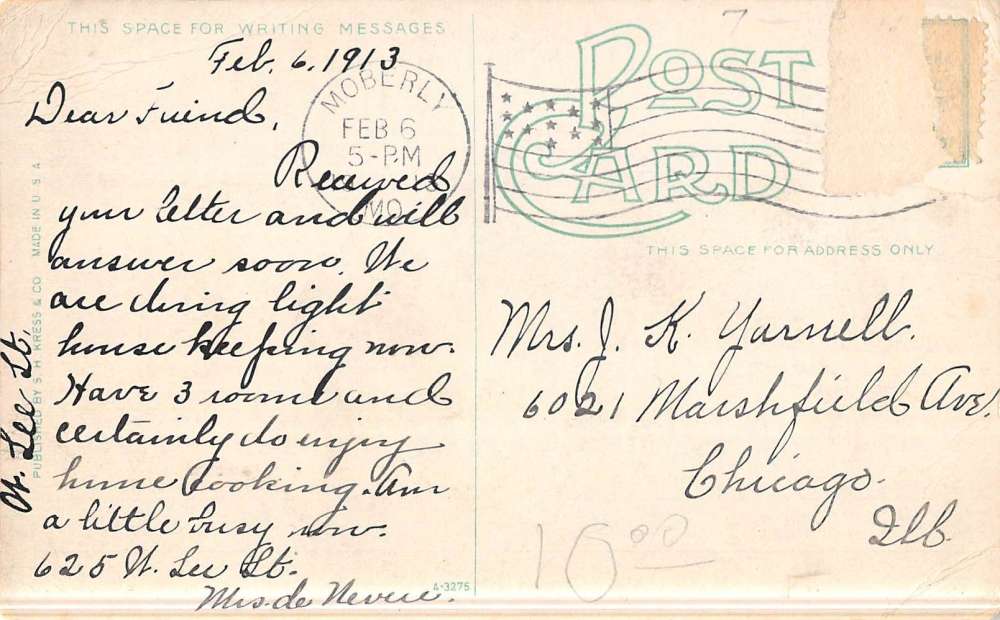 THIS SPACE FOR WRITING MESSAGES
Feb. 6, 1913
Dear Friend,
Received
your letter and will
answer soon. We
are doing light
house keeping now.
Have 3 rooms and
certainly do enjoy
home cooking. Am
a little busy now.
625 W. Lee St.
Mrs. de Nevere.
W. Lee St.
PUBLISHED BY S. H. KRESS & CO. MADE IN U.S.A.
A-3275
MOBERLY
FEB 6
5-PM
MO.
7
POST
CARD
THIS SPACE FOR ADDRESS ONLY
Mrs. J. K. Yarnell.
6021 Marshfield Ave.
Chicago.
Ill.
18.00